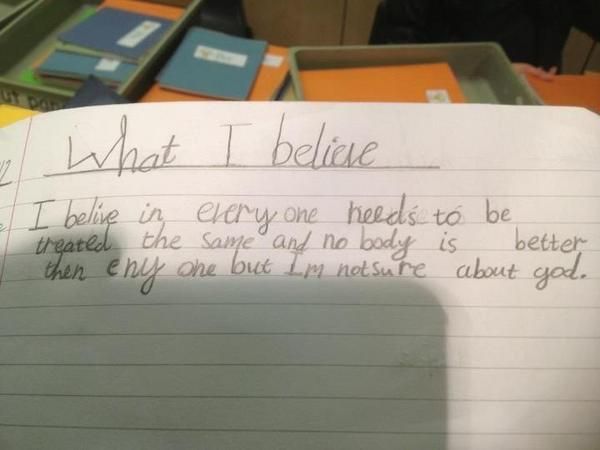 What I believe
I belive in everyone needs to be
treated the same and no body is better
then eny one but I'm not sure about god.